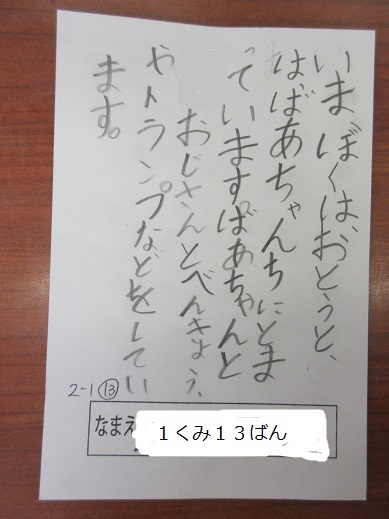 いま、ぼくは、おとうと、
はばあちゃんちにとま
っていますばあちゃんと
おじさんとべんきょう、
やトランプなどをしてい
ます。
2-1 ⑬
なまえ １くみ１３ばん